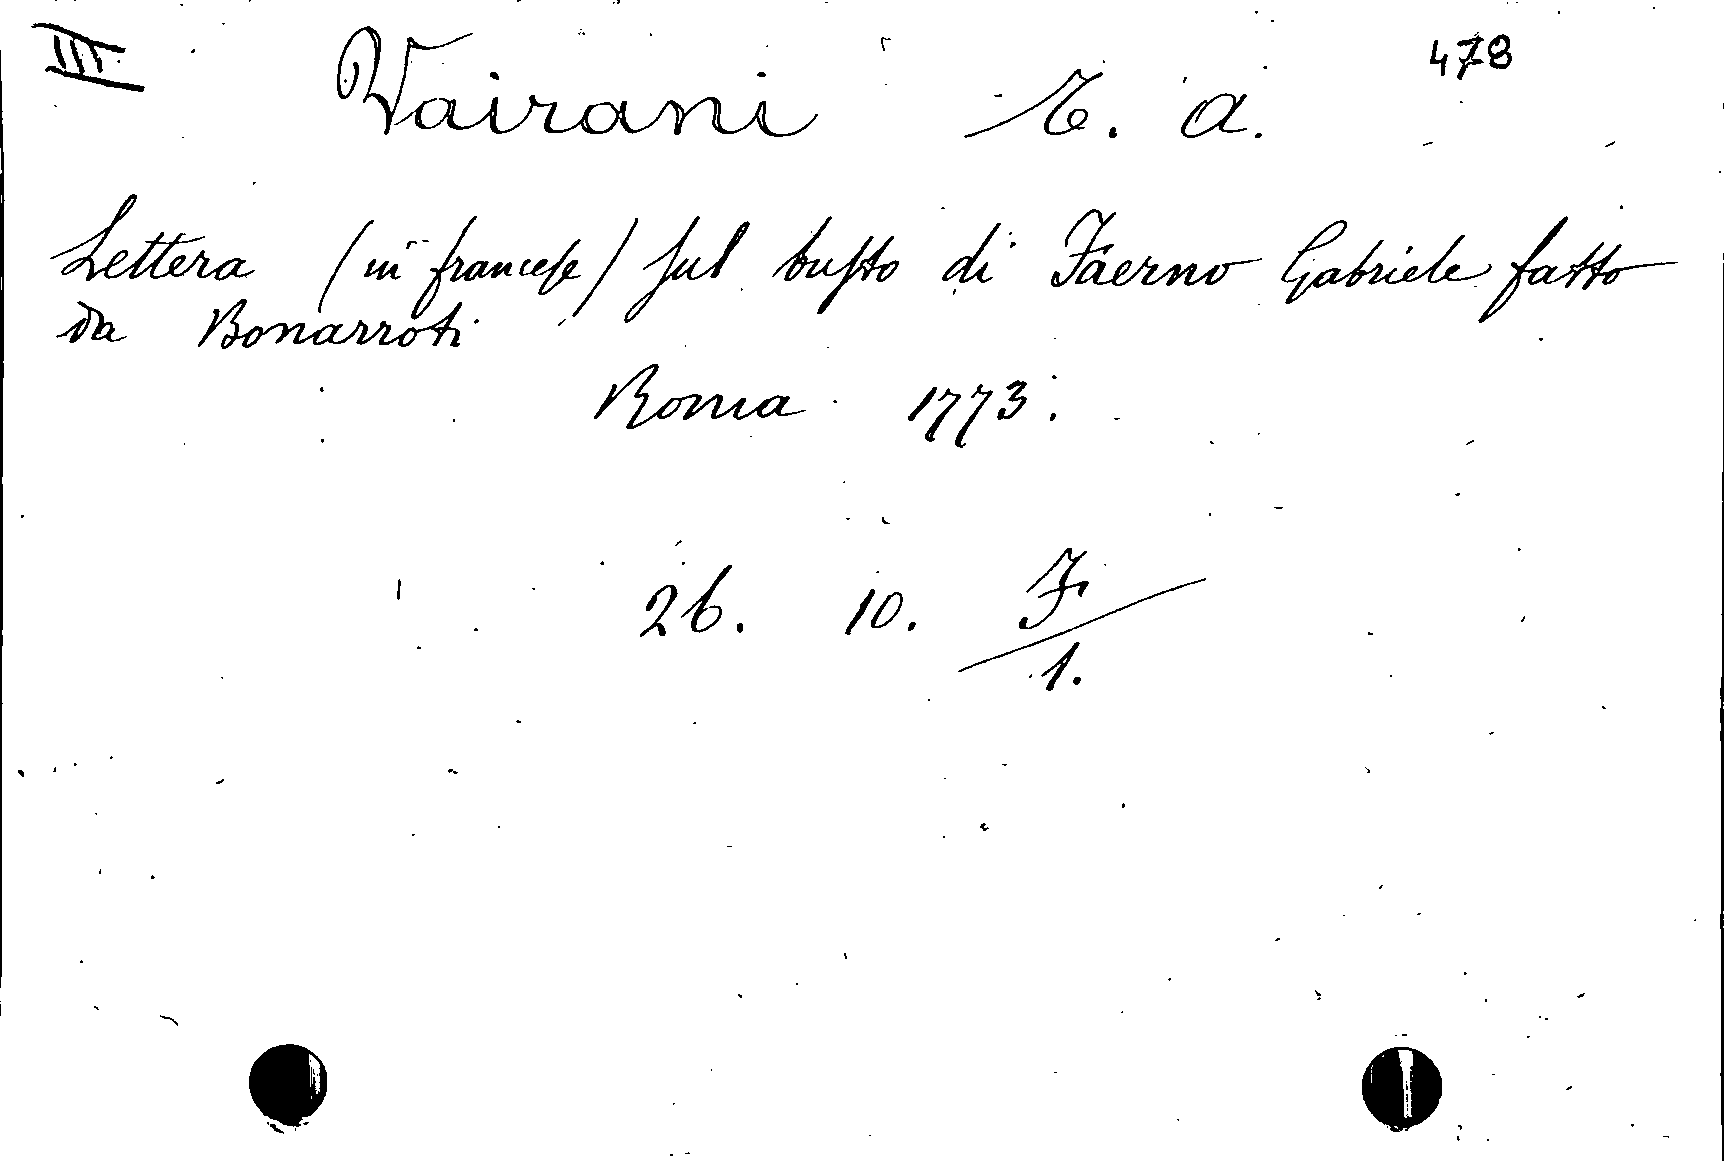 III 478
Vairani T. A.
Lettera (in francese) sul busto di Faerno Gabriele fatto
da Bonarroti
Roma 1773.
26. 10. F
1.